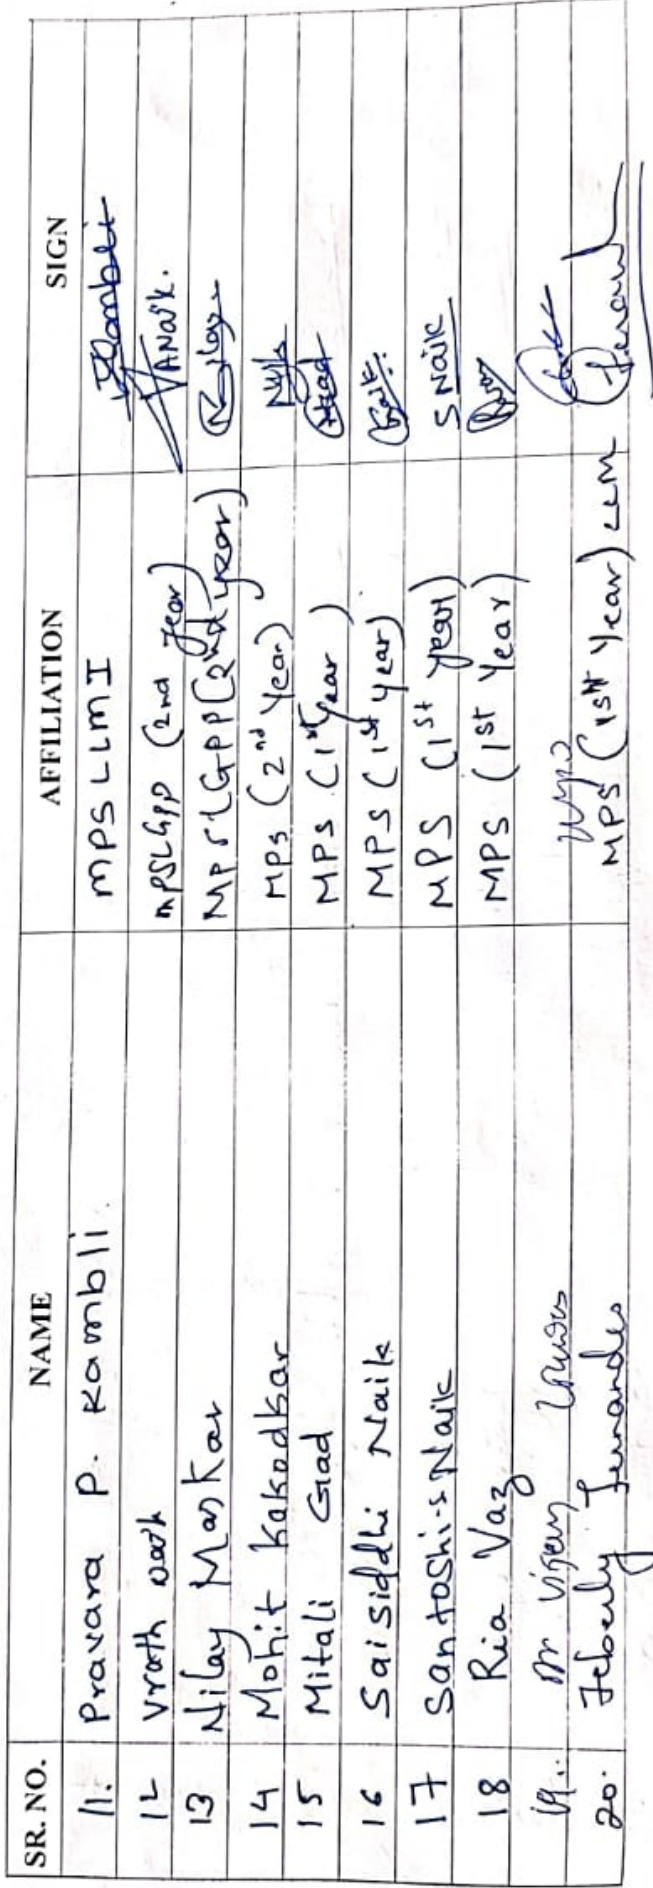 SR. NO. NAME AFFILIATION SIGN
11. Pravara P. Kambli MPS LLM I Kambli
12 Vrath MPSLGPP (2nd year) VANaik.
13 Nilay Maskar MPSLGPP (2nd year)
14 Mohit Kakodkar MPS (2nd Year)
15 Mitali Gad MPS (1st year) Gad
16 Saisiddhi Naik MPS (1st year)
17 Santoshi.s.Naik MPS (1st year) SNaik
18 Ria Vaz MPS (1st Year)
19.
20. Fernandes MPS (1st Year) LLM